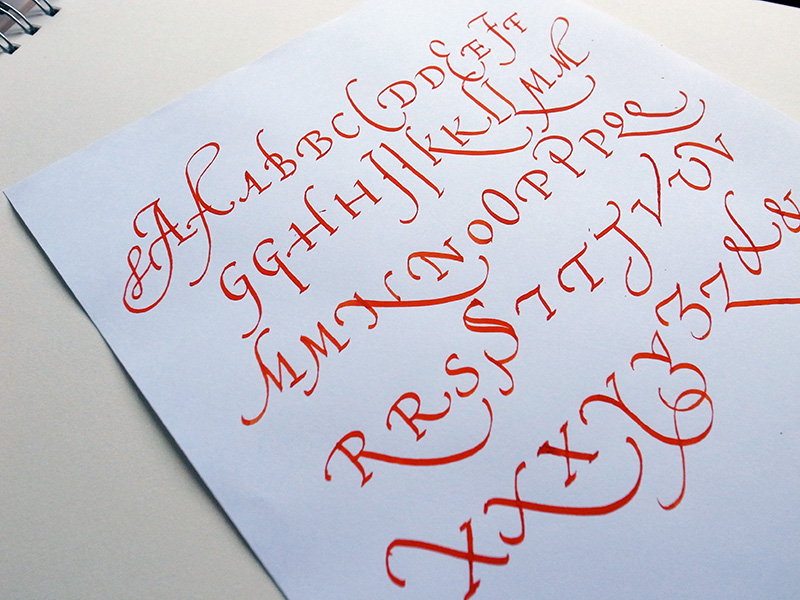 & A A A B B C C D D E E F F
G G H H J J K K L L M M
M M N N O O P P P Q Q
R R S S T T T J V U V
X X X Y Y Z Z Z & &